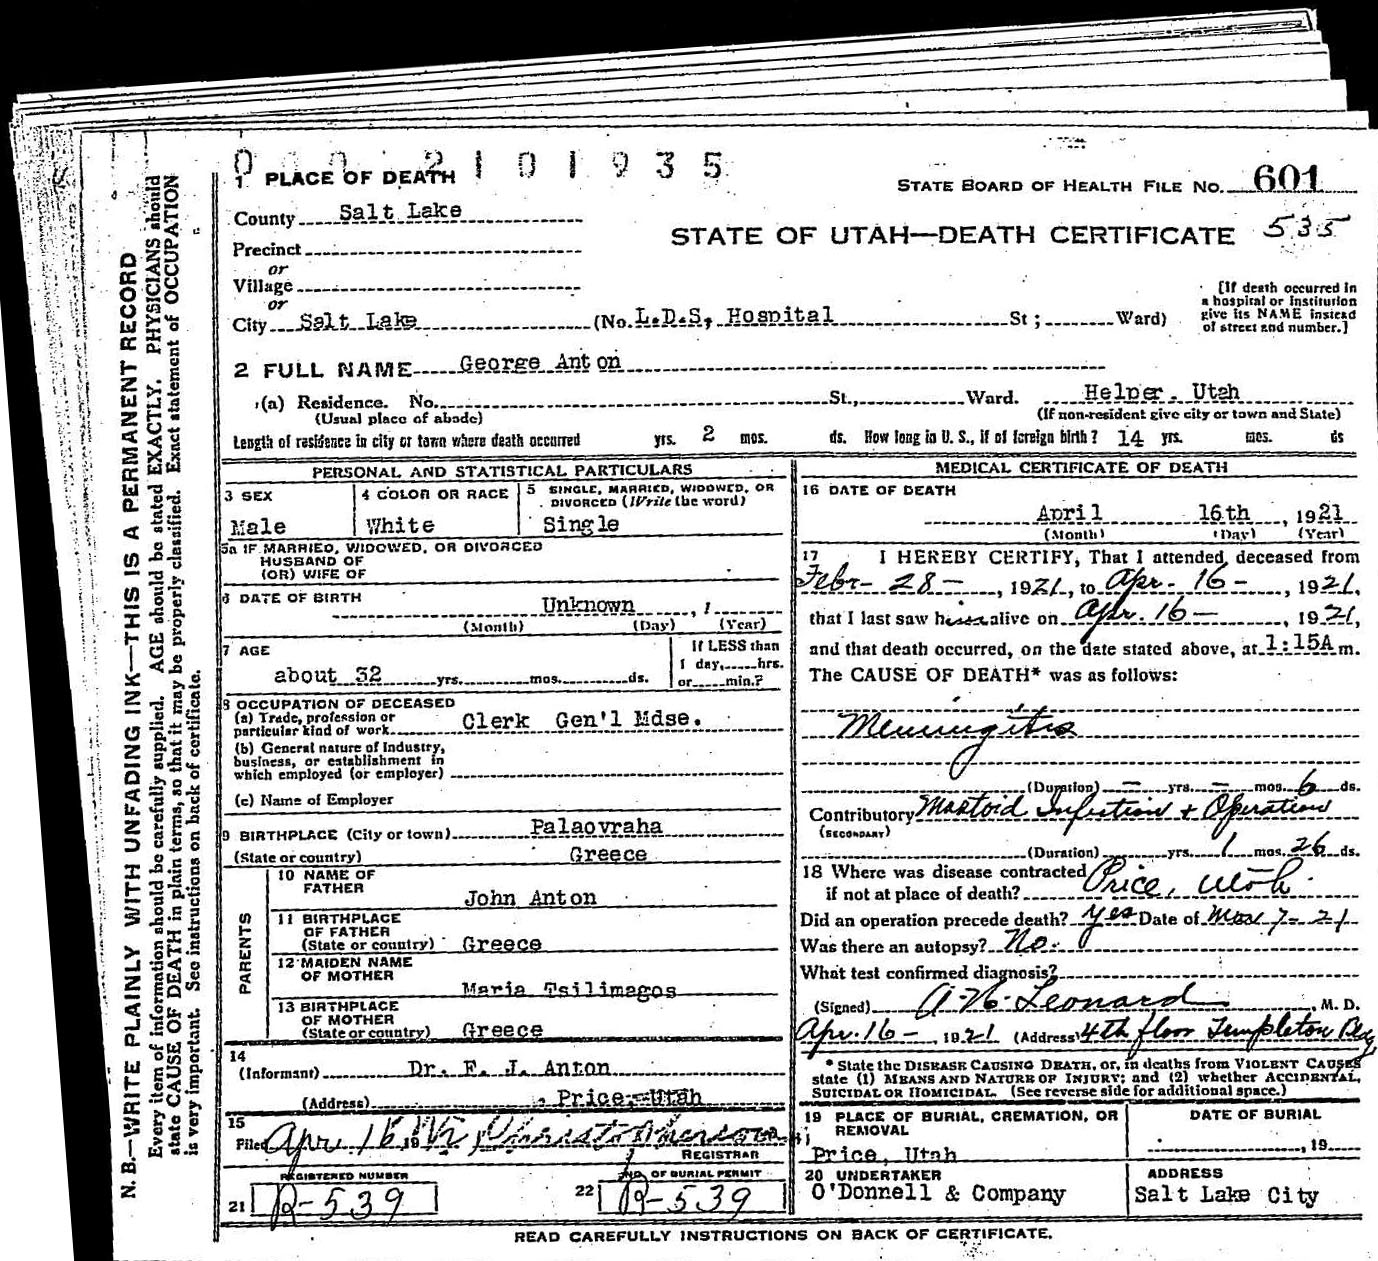 0002101935
1 PLACE OF DEATH
STATE BOARD OF HEALTH FILE No. 601
County Salt Lake
STATE OF UTAH—DEATH CERTIFICATE 535
Precinct
or
Village
or
City Salt Lake (No. L.D.S, Hospital St; Ward)
[If death occurred in
a hospital or institution
give its NAME instead
of street and number.]
2 FULL NAME George Anton
(a) Residence. No. St., Ward. Helper. Utah
(Usual place of abode) (If non-resident give city or town and State)
Length of residence in city or town where death occurred yrs. 2 mos. ds. How long in U. S., if of foreign birth? 14 yrs. mos. ds
PERSONAL AND STATISTICAL PARTICULARS
3 SEX
Male
4 COLOR OR RACE
White
5 SINGLE, MARRIED, WIDOWED, OR
DIVORCED (Write the word)
Single
5a IF MARRIED, WIDOWED, OR DIVORCED
HUSBAND OF
(OR) WIFE OF
6 DATE OF BIRTH
Unknown , 1
(Month) (Day) (Year)
7 AGE
about 32 yrs. mos. ds.
If LESS than
1 day, hrs.
or min.?
8 OCCUPATION OF DECEASED
(a) Trade, profession or
particular kind of work Clerk Gen'l Mdse.
(b) General nature of Industry,
business, or establishment in
which employed (or employer)
(c) Name of Employer
9 BIRTHPLACE (City or town) Palaovraha
(State or country) Greece
PARENTS
10 NAME OF
FATHER
John Anton
11 BIRTHPLACE
OF FATHER
(State or country) Greece
12 MAIDEN NAME
OF MOTHER
Maria Tsilimagos
13 BIRTHPLACE
OF MOTHER
(State or country) Greece
14
(Informant) Dr. E. J. Anton
(Address) Price, Utah
15
Filed Apr. 16 19
REGISTRAR
REGISTERED NUMBER
21 R-539
NO. OF BURIAL PERMIT
22 R-539
MEDICAL CERTIFICATE OF DEATH
16 DATE OF DEATH
April 16th , 1921
(Month) (Day) (Year)
17 I HEREBY CERTIFY, That I attended deceased from
Febr- 28- , 1921, to Apr. 16- , 1921,
that I last saw him alive on Apr. 16- , 1921,
and that death occurred, on the date stated above, at 1:15A m.
The CAUSE OF DEATH* was as follows:
Meningitis
(Duration) - yrs. - mos. 6 ds.
Contributory Mastoid Infection + Operation
(SECONDARY)
(Duration) yrs. 1 mos. 26 ds.
18 Where was disease contracted
if not at place of death? Price, Utah.
Did an operation precede death? Yes Date of Mar 7-21
Was there an autopsy? No.
What test confirmed diagnosis?
(Signed) A. N. Leonard , M. D.
Apr. 16- , 1921 (Address) 4th floor Templeton
* State the DISEASE CAUSING DEATH, or, in deaths from VIOLENT CAUSES
state (1) MEANS AND NATURE OF INJURY; and (2) whether ACCIDENTAL,
SUICIDAL OR HOMICIDAL. (See reverse side for additional space.)
19 PLACE OF BURIAL, CREMATION, OR
REMOVAL
Price, Utah
DATE OF BURIAL
, 19
20 UNDERTAKER
O'Donnell & Company
ADDRESS
Salt Lake City
READ CAREFULLY INSTRUCTIONS ON BACK OF CERTIFICATE.
N. B.—WRITE PLAINLY WITH UNFADING INK—THIS IS A PERMANENT RECORD
Every item of information should be carefully supplied. AGE should be stated EXACTLY. PHYSICIANS should
state CAUSE OF DEATH in plain terms, so that it may be properly classified. Exact statement of OCCUPATION
is very important. See instructions on back of certificate.